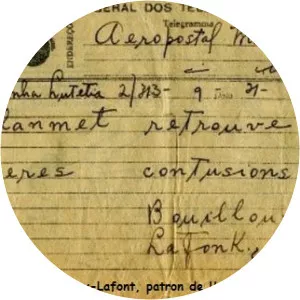 ERAL DOS TE
Telegramma
ENDEREÇO
Aeropostal
Lutetia 2/313- 9 21-
lanmet retrouve
eres contusions
Bouillou
Lafonk.
-Lafont, patron de l'